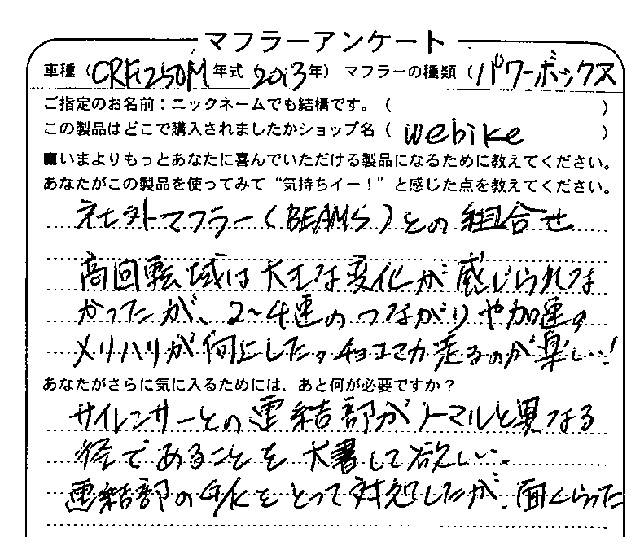 マフラーアンケート
車種(CRF250M 年式 2013年) マフラーの種類(パワーボックス
ご指定のお名前:ニックネームでも結構です。( )
この製品はどこで購入されましたかショップ名( webike )
■いまよりもっとあなたに喜んでいただける製品になるために教えてください。
あなたがこの製品を使ってみて“気持ちイー!”と感じた点を教えてください。
他社外マフラー(BEAMS)との組合せ
高回転域は大きな変化が感じられな
かったが、2〜4速のつながりや加速の
メリハリが向上した。チョコマカ走るのが楽しい!
あなたがさらに気に入るためには、あと何が必要ですか?
サイレンサーとの連結部がノーマルと異なる
径であることを大書して欲しい。
連結部の をとって対処したが、面くらった